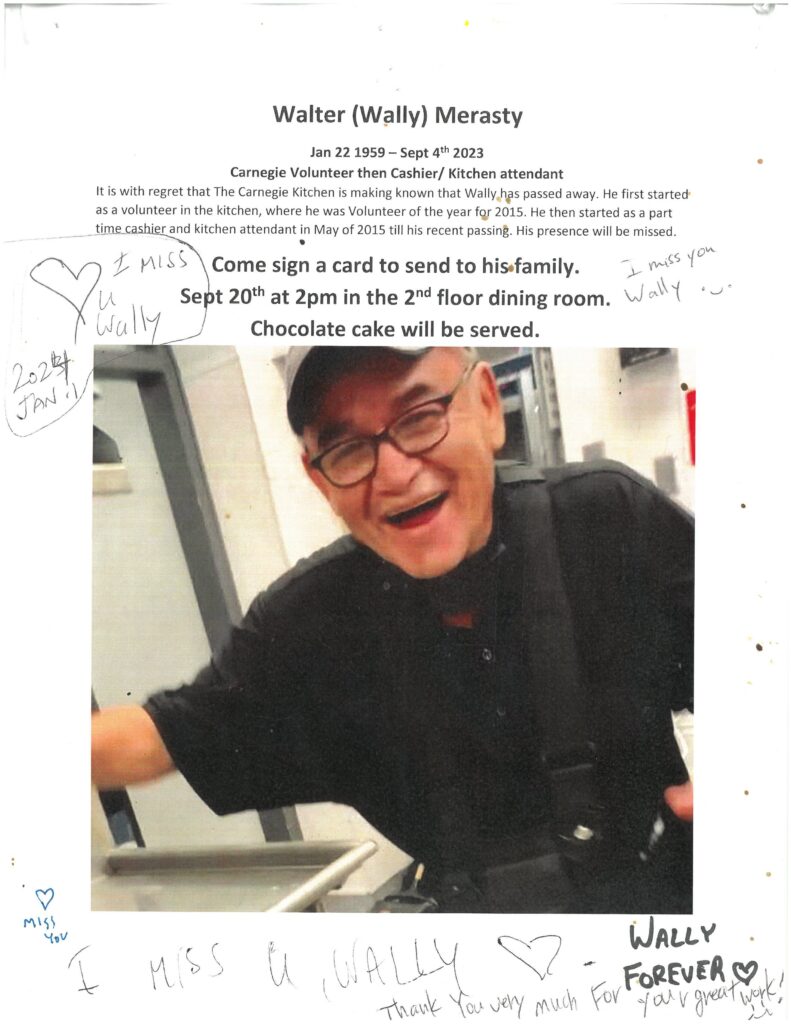 Walter (Wally) Merasty
Jan 22 1959 – Sept 4th 2023
Carnegie Volunteer then Cashier/ Kitchen attendant
It is with regret that The Carnegie Kitchen is making known that Wally has passed away. He first started
as a volunteer in the kitchen, where he was Volunteer of the year for 2015. He then started as a part
time cashier and kitchen attendant in May of 2015 till his recent passing. His presence will be missed.
Come sign a card to send to his family.
Sept 20th at 2pm in the 2nd floor dining room.
Chocolate cake will be served.
I MISS
U
Wally
2024
JAN.1
I miss you
Wally
MISS
YOU
I MISS U, WALLY
WALLY
FOREVER
Thank You very much For your great work!